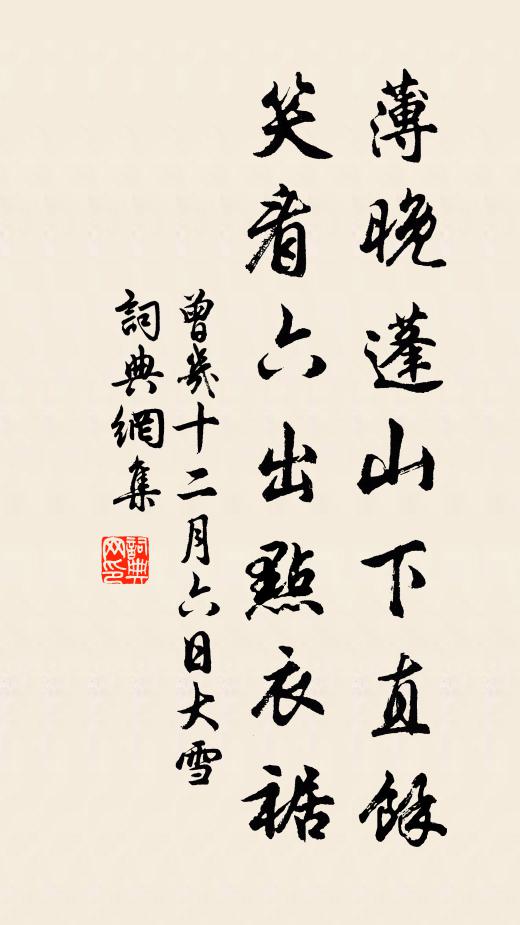 薄晚蓬山下直餘
笑看六出點衣裾
曾幾十二月六日大雪
詞典網集
詞典网印